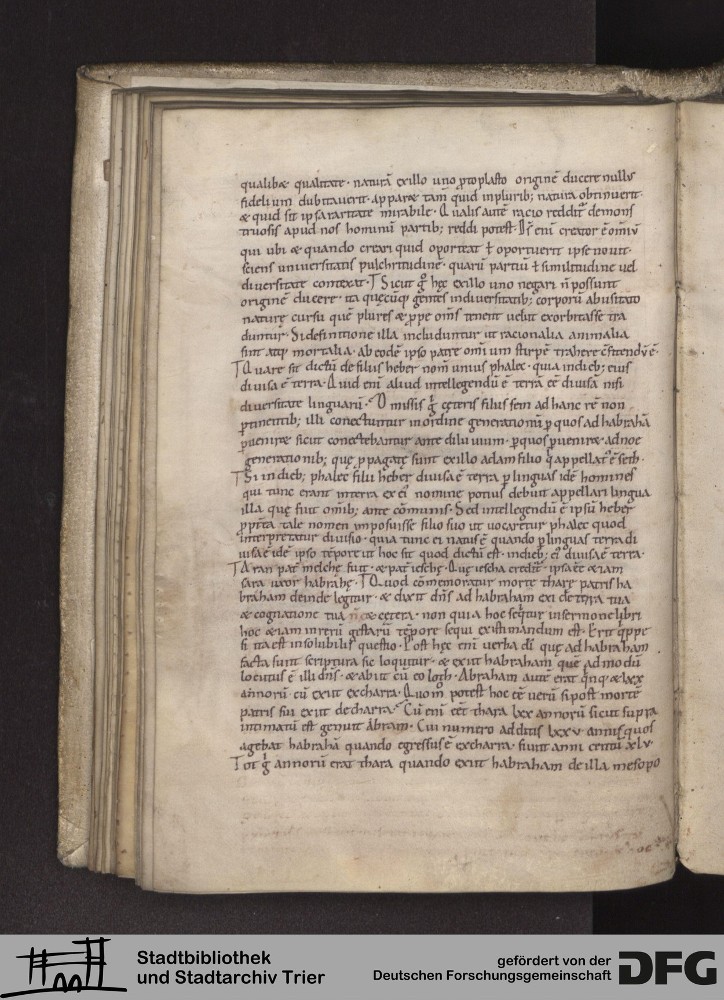 qualibæ qualitate · naturã exillo uno ꝓtoplasto originẽ ducere nullꝰ
fidelium dubitauerit · apparæ tam quid inplurib; natura obtinuerit ·
& quid sit ipsa raritate mirabile · Qualis autẽ racio redditᷓ demons
truosis apud nos hominũ partib; reddi potest · Dſ̄ enĩ creator ẽ omĩũ
qui ubi & quando creari quid oporteat ł oportuerit ipse nouit ·
sciens uniuersitatis pulchritudinẽ · quarũ partiũ ł similitudine uel
diuersitate contexat · Sicut g̊ hęc exillo uno negari ñ possunt
originẽ ducere · ita quęcũq; gentes indiuersitatib; corporũ abusitato
naturę cursu quẽ plures & ꝓpe om̃s tenent uelut exorbitasse tra
duntur · Sidefinitione illa includuntur ut racionalia animalia
sint atq; mortalia · ab eodẽ ipso patre om̃ium stirpẽ trahere c̃fitendũ ẽ ·
Quare sit dictũ de filiis heber nom̃ unius phalec · quia indieb; eius
diuisa ẽ terra · Quid enĩ aliud intellegendũ ẽ terra eẽ diuisã nisi
diuersitate linguarũ · Omissis g̊ cęteris filiis sem ad hanc rẽ non
ꝑtinentib; illi conectuntur inordine generationũ ꝑ quos ad habrahã
ꝑuenir& sicut conectebantur ante diluuium · ꝑquos ꝑuenir& adnoe
generationib; quę ꝓpagatę sunt exillo adam filio q̇ appellatᷓ ẽ seth ·
Si indieb; phalec filii heber diuisa ẽ terra ꝑ linguas idẽ homines
qui tunc erant interra ex eiꝰ nomine potius debuit appellari lingua
illa quę fuit om̃ib; ante cõmunis · Sed intellegendũ ẽ ipsũ heber
ꝓph̃ta tale nomen imposuisse filio suo ut uocaretur phalec quod
interpretatur diuisio · quia tunc ei natus ẽ quando ꝑ linguas terra di
uisa ẽ idẽ ipso tẽpore ut hoc sit quod dictũ est · indieb; eiꝰ diuisa ẽ terra ·
Aran pat̃ melchę fuit · & pat̃ ieschę · Quę iescha creditᷓ · ipsa eẽ &iam
sara uxor habrahę · Quod cõmemoratur morte tharę patris ha
braham deinde legitur · & dixit dñs ad habraham exi de terra tua
& cognatione tua & cętera · non quia hoc seqᷓtur insermone libri
hoc &iam inrerũ gestarũ tẽpore sequi existimandum est · Erit qᷓppe
si ita est insolubilis questio · Post hęc enĩ uerba dĩ quę ad habraham
facta sunt scriptura sic loquitur · & exiit habraham quẽ ad modũ
locutus ẽ illi dñs · & abiit cũ eo loth · Abraham autẽ erat qᷓnq; & lxx
annorũ cũ exiit excharra · Quom̊ potest hoc eẽ uerũ si post mortẽ
patris sui exiit de charra · Cũ enĩ eẽt thara lxx annorũ sicut supra
intimatũ est genuit abram · Cui numero additis lxxv annis quos
agebat habrahã quando egressus ẽ excharra · fiunt anni centũ xlv ·
Tot g̊ annorũ erat thara quando exiit habraham de illa mesopo
Stadtbibliothek
und Stadtarchiv Trier
gefördert von der
Deutschen Forschungsgemeinschaft
DFG